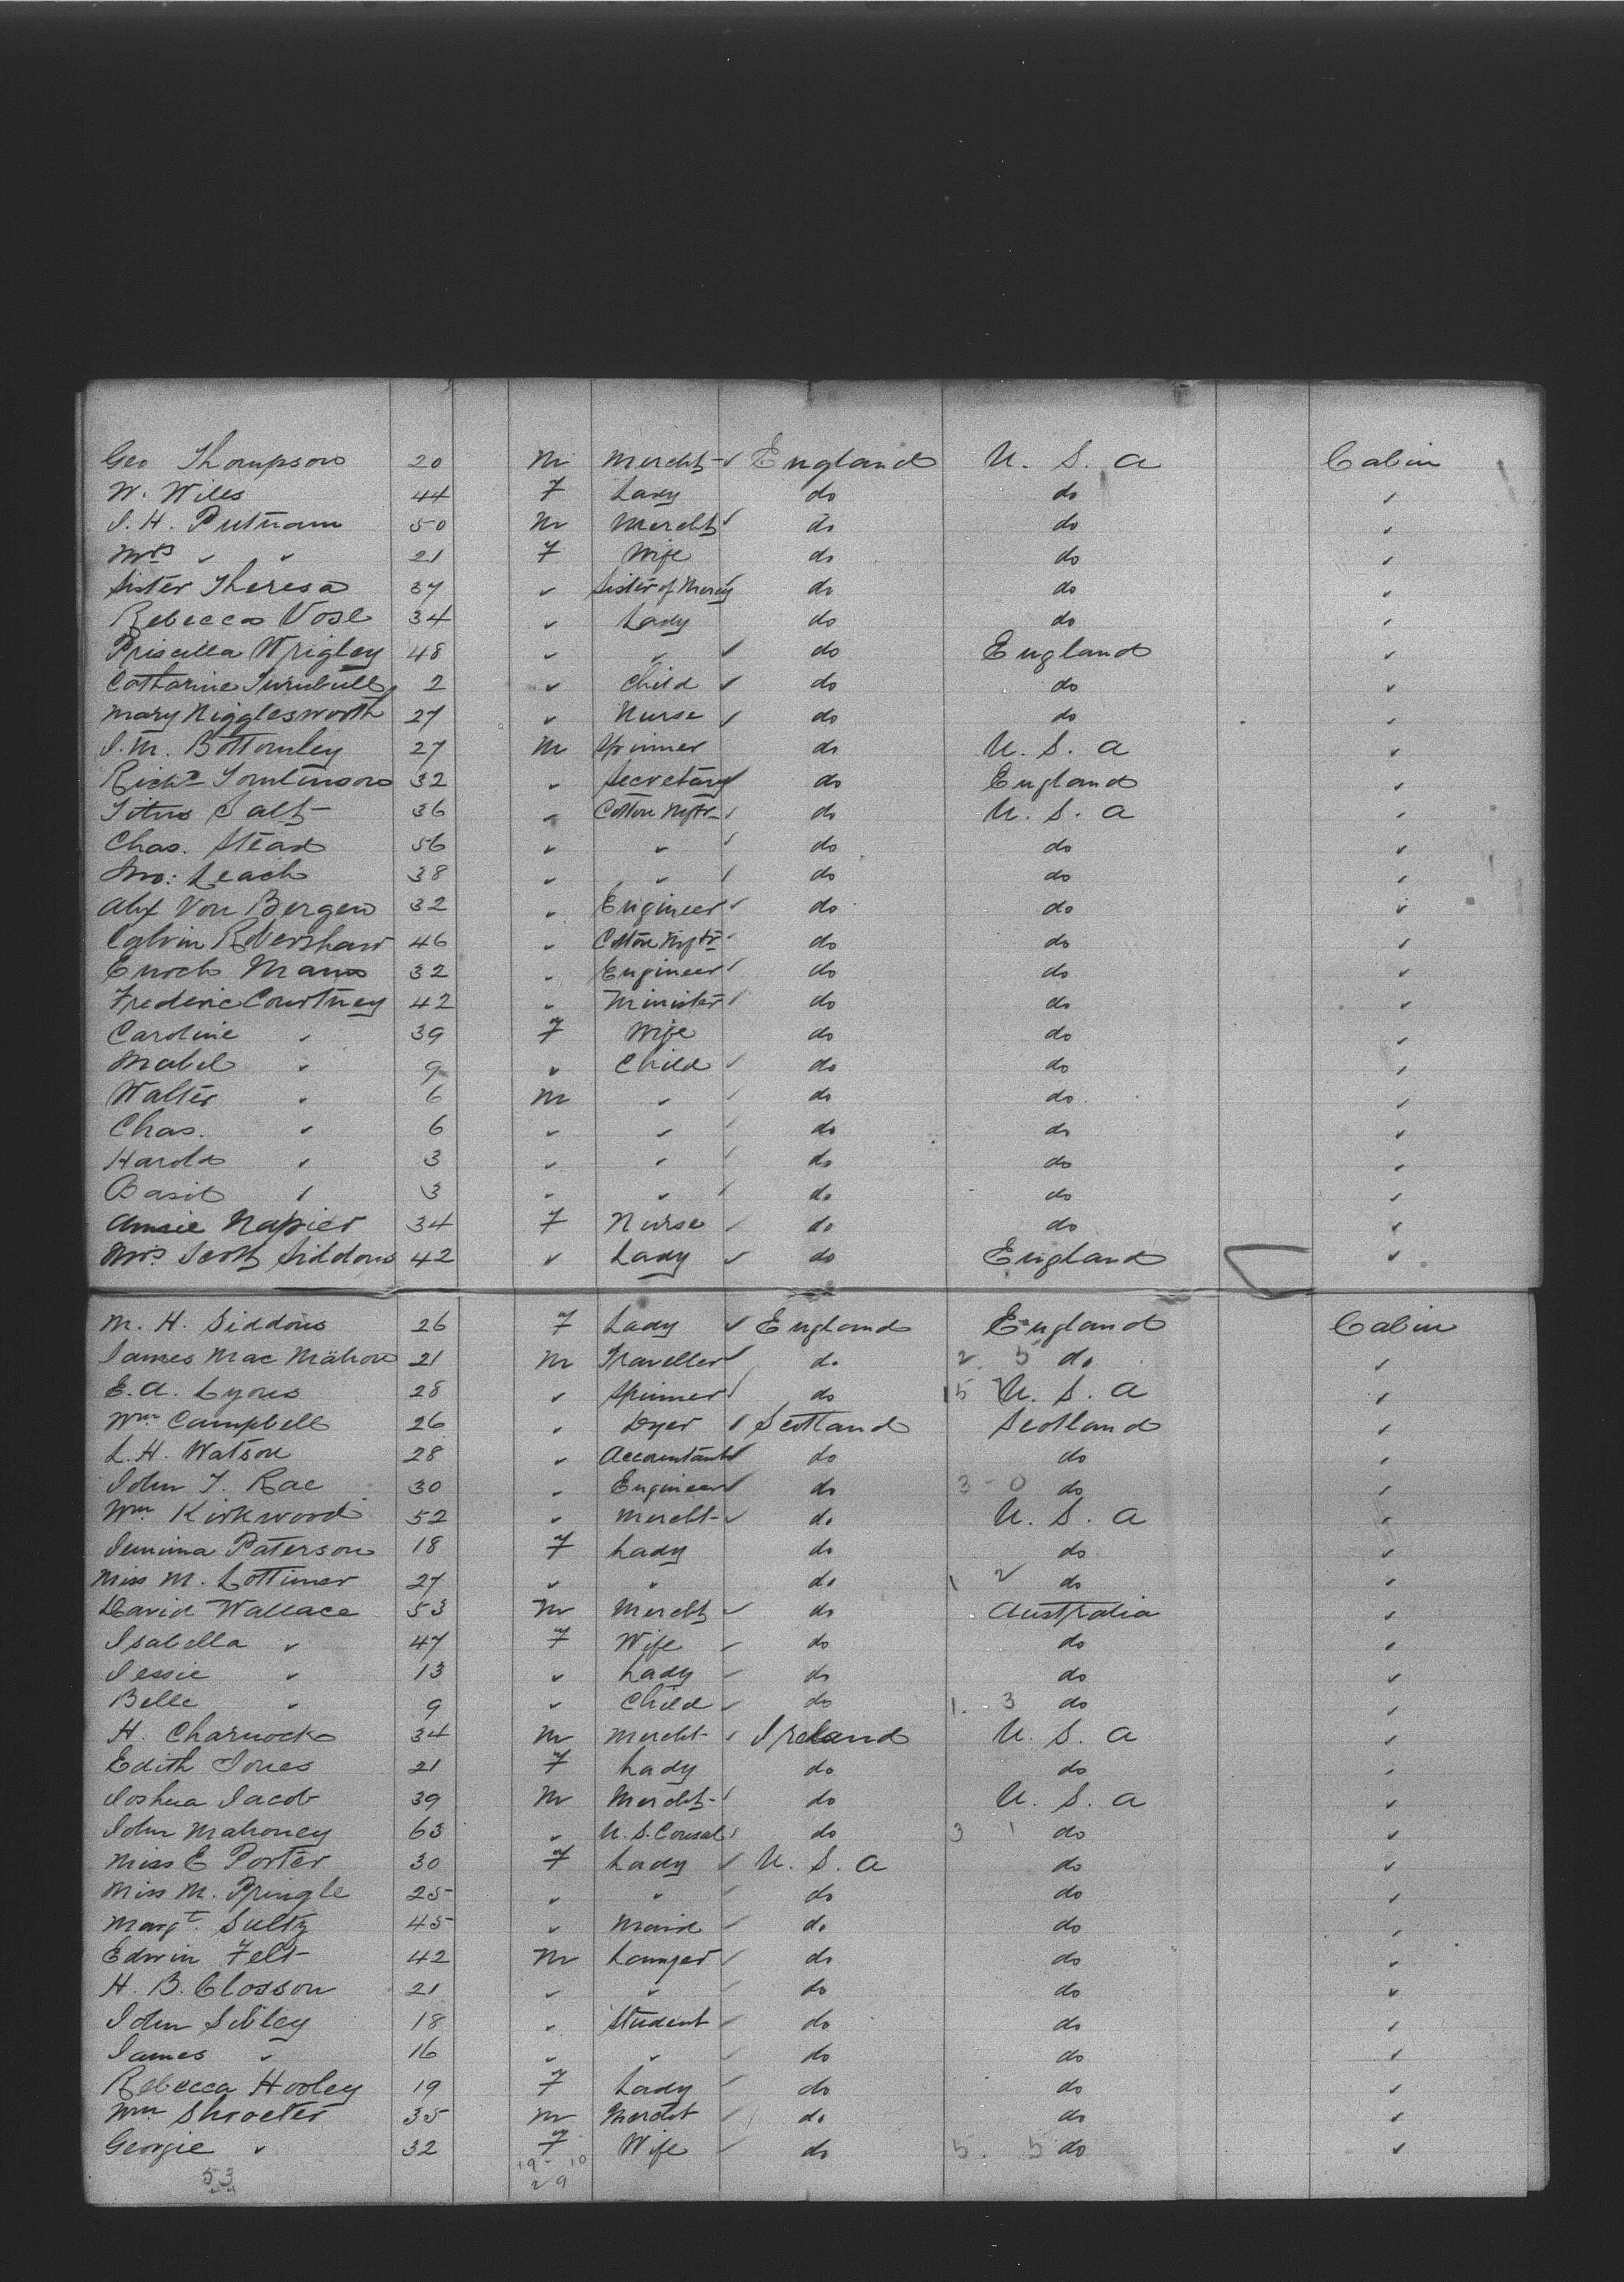 Geo Thompson 20 M Mercht England U. S. A Cabin
W. Wiles 44 F Lady do do ✓
J. H. Putnam 50 M Mercht do do ✓
Mrs " " 21 F Wife do do ✓
Sister Theresa 37 " Sister of Mercy do do ✓
Rebecca Vose 34 " Lady do do ✓
Priscilla Wrigley 48 " " do England ✓
Catharine Turnbull 2 " Child do do ✓
Mary Nigglesworth 27 " Nurse do do ✓
J. M. Bottomley 27 M Spinner do U. S. A ✓
Richd Tomlinson 32 " Secretary do England ✓
Titus Salt 36 " Cotton Mftr do U. S. A ✓
Chas. Stead 56 " " do do ✓
Jno: Leach 38 " " do do ✓
Alex Von Bergen 32 " Engineer do do ✓
Calvin 46 " Cotton Mftr do do ✓
Enoch Mann 32 " Engineer do do ✓
Frederic Courtney 42 " Minister do do ✓
Caroline " 39 F Wife do do ✓
Mabel " 9 " Child do do ✓
Walter " 6 M " do do ✓
Chas. " 6 " " do do ✓
Harold " 3 " " do do ✓
Basil " 3 " " do do ✓
Annie Napier 34 F Nurse do do ✓
Mrs. Scott Siddons 42 " Lady do England ✓
M. H. Siddons 26 F Lady England England Cabin
James Mac Mahon 21 M Traveller do 2. 5 do ✓
E. A. Lyons 28 " Spinner do 15 U. S. A ✓
Wm Campbell 26 " Dyer Scotland Scotland ✓
L. H. Watson 28 " Accountant do do ✓
John T. Rae 30 " Engineer do 3 - 0 do ✓
Wm. Kirkwood 52 " Mercht do U. S. A ✓
Jemima Paterson 18 F Lady do do ✓
Miss M. Lottimer 27 " " do 1 2 do ✓
David Wallace 53 M Mercht do Australia ✓
Isabella " 47 F Wife do do ✓
Jessie " 13 " Lady do do ✓
Belle " 9 " Child do 1. 3 do ✓
H. Charnock 34 M Mercht Ireland U. S. A ✓
Edith Jones 21 F Lady do do ✓
Joshua Jacob 39 M Mercht do U. S. A ✓
John Mahoney 63 " U. S. Consul do 3 1 do ✓
Miss E Porter 30 F Lady U. S. A do ✓
Miss M. Pringle 25 " " do do ✓
Margt. Sultz 45 " Maid do do ✓
Edwin Felt 42 M Lawyer do do ✓
H. B. Closson 21 " " do do ✓
John Sibley 18 " Student do do ✓
James " 16 " " do do ✓
Rebecca Hooley 19 F Lady do do ✓
Wm Shroeter 35 M Mercht do do ✓
Georgie " 32 F Wife do 5. 5 do ✓
53 19 - 10
29